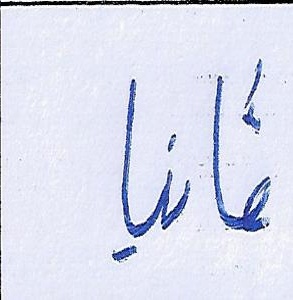 ثانيا